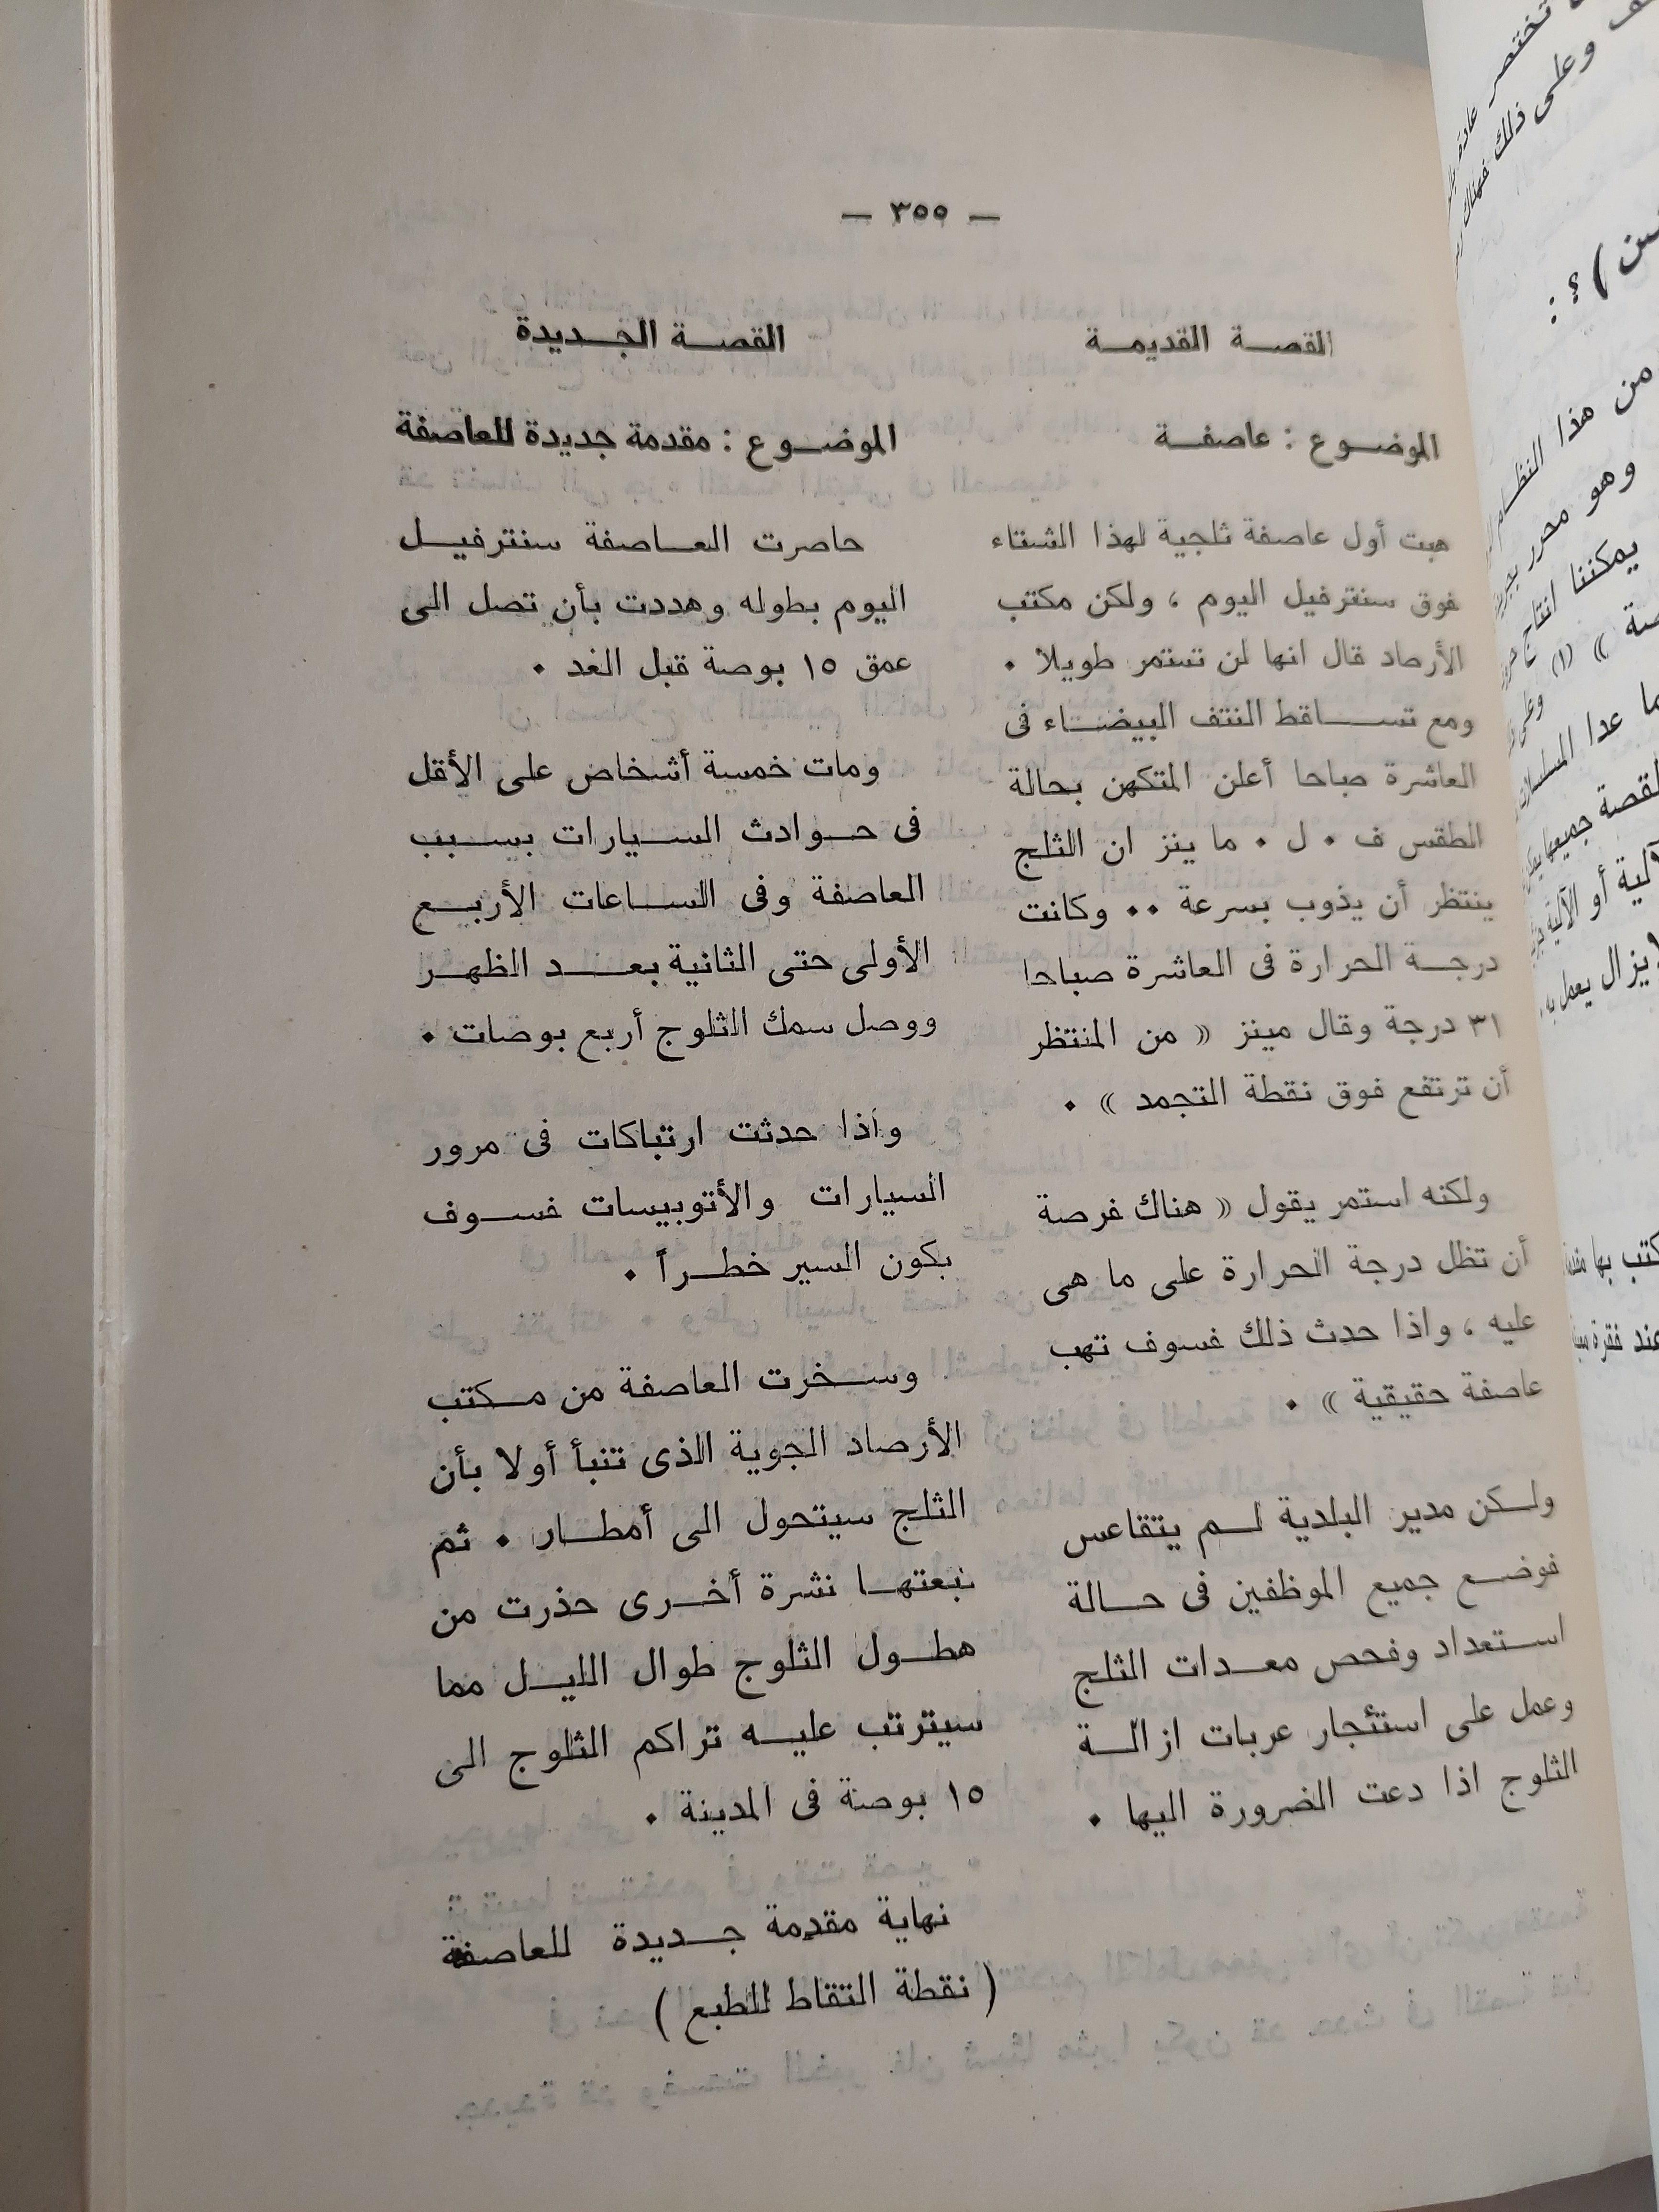 — ٣٥٥ —
القصـــة القديمــة
الموضــوع : عاصفــة
هبت أول عاصفة ثلجية لهذا الشتاء
فوق سنترفيل اليوم ، ولكن مكتب
الأرصاد قال انها لن تستمر طويلا .
ومع تســـاقط النتف البيضــاء فى
العاشرة صباحا أعلن المتكهن بحالة
الطقس ف . ل . ماينز ان الثلج
ينتظر أن يذوب بسرعة .. وكانت
درجــة الحرارة فى العاشرة صباحا
٣١ درجة وقال مينز « من المنتظر
أن ترتفع فوق نقطة التجمد » .
ولكنه استمر يقول « هناك فرصة
أن تظل درجة الحرارة على ما هى
عليه ، واذا حدث ذلك فسوف تهب
عاصفة حقيقية » .
ولــكن مدير البلدية لــم يتقاعس
فوضــع جميع الموظفين فى حــالة
اســتعداد وفحص معــدات الثلج
وعمل على استئجار عربات ازالــة
الثلوج اذا دعت الضرورة اليها .
القصــة الجــديدة
الموضــوع : مقدمة جديدة للعاصفة
حاصرت العــاصفة سنترفيــل
اليوم بطوله وهددت بأن تصل الى
عمق ١٥ بوصة قبل الغد .
ومات خمسة أشخاص على الأقل
فى حــوادث الســيارات بســبب
العاصفة وفى الســاعات الأربــع
الأولى حتى الثانية بعــد الظهــر
ووصل سمك الثلوج أربع بوصات .
واذا حدثت ارتباكات فى مرور
السيارات والأتوبيسات فســوف
يكون السير خطــراً .
وســخرت العاصفة من مــكتب
الأرصاد الجوية الذى تنبأ أولا بأن
الثلج سيتحول الى أمطــار . ثم
تبعتهــا نشرة أخــرى حذرت من
هطــول الثلوج طوال الليــل مما
سيترتب عليــه تراكم الثلوج الى
١٥ بوصة فى المدينة .
نهاية مقدمة جــديدة للعاصفة
( نقطة التقاط للطبع )